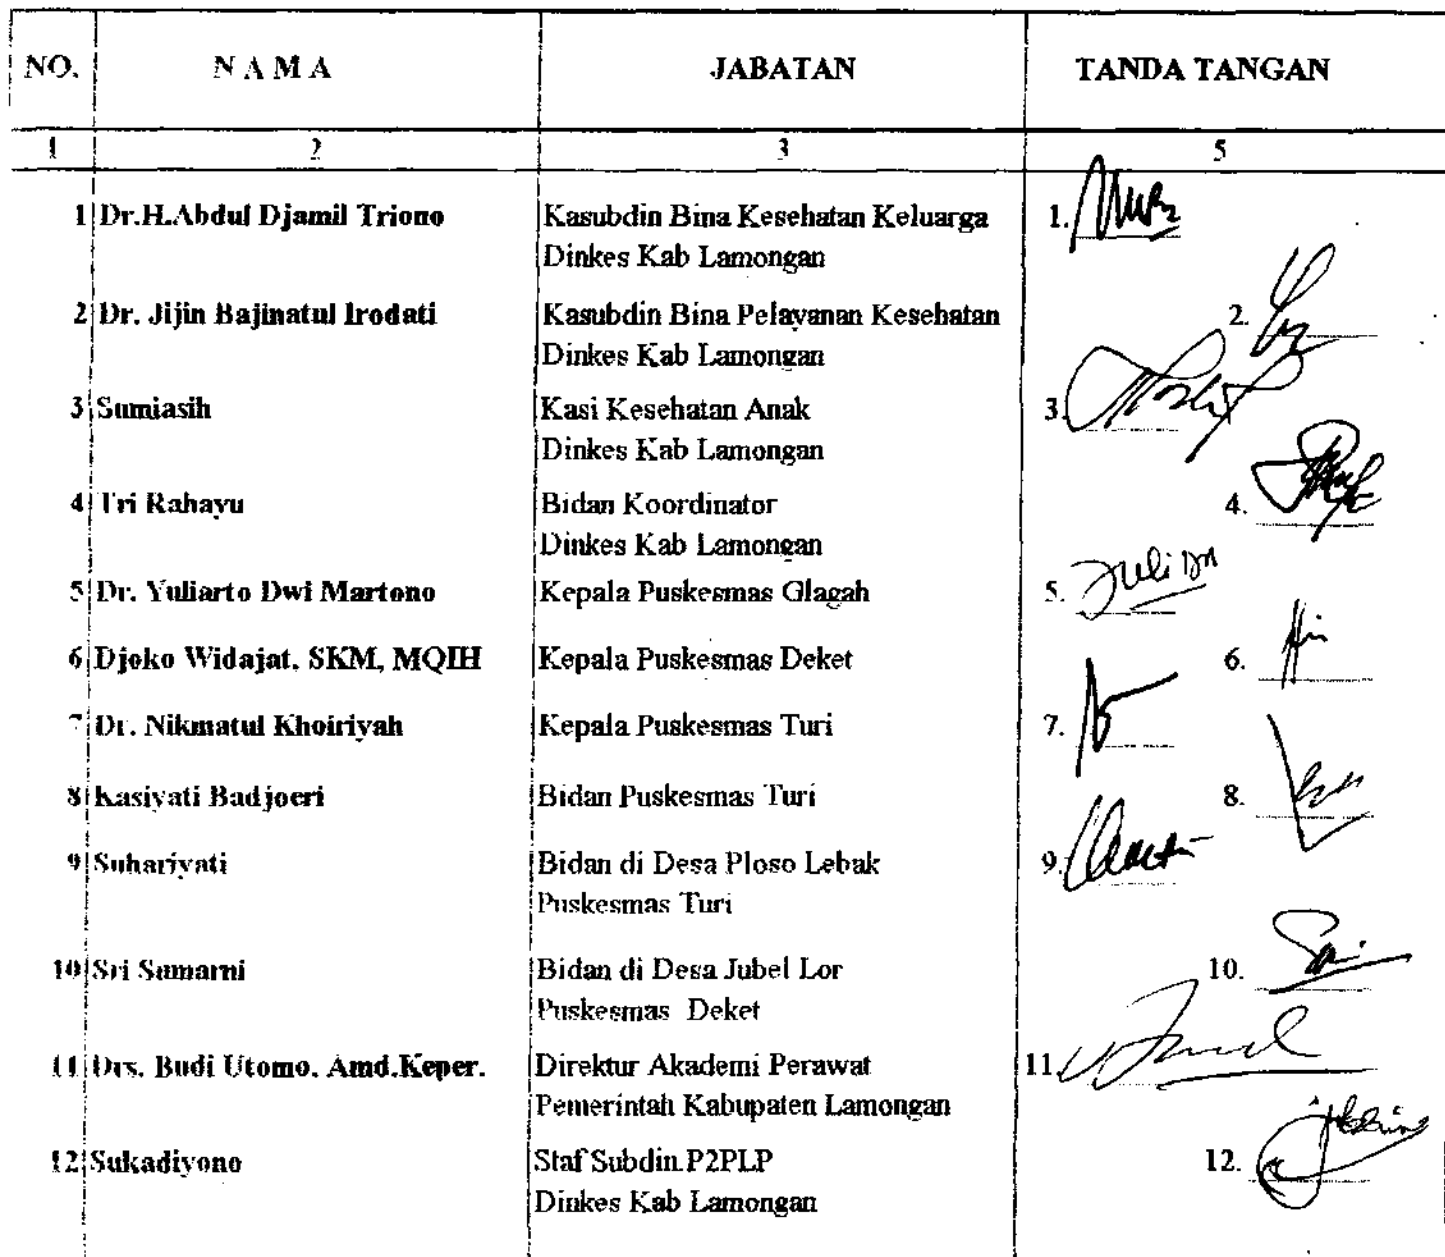 NO. N A M A JABATAN TANDA TANGAN
1 2 3 5
1 Dr.H.Abdul Djamil Triono Kasubdin Bina Kesehatan Keluarga 1.
Dinkes Kab Lamongan
2 Dr. Jijin Bajinatul Irodati Kasubdin Bina Pelayanan Kesehatan 2.
Dinkes Kab Lamongan
3 Sumiasih Kasi Kesehatan Anak 3.
Dinkes Kab Lamongan
4 Tri Rahayu Bidan Koordinator 4.
Dinkes Kab Lamongan
5 Dr. Yuliarto Dwi Martono Kepala Puskesmas Glagah 5.
6 Djoko Widajat. SKM, MQIH Kepala Puskesmas Deket 6.
7 Dr. Nikmatul Khoiriyah Kepala Puskesmas Turi 7.
8 Kasiyati Badjoeri Bidan Puskesmas Turi 8.
9 Suhariyati Bidan di Desa Ploso Lebak 9.
Puskesmas Turi
10 Sri Sumarni Bidan di Desa Jubel Lor 10.
Puskesmas Deket
11 Drs. Budi Utomo. Amd.Keper. Direktur Akademi Perawat 11.
Pemerintah Kabupaten Lamongan
12 Sukadiyono Staf Subdin.P2PLP 12.
Dinkes Kab Lamongan